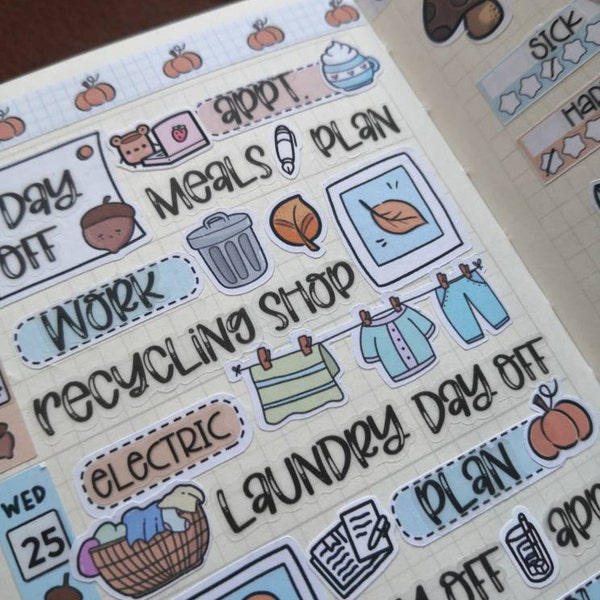 APPT
SICK
MEALS PLAN
HAP
DAY
OFF
WORK
RECYCLING SHOP
ELECTRIC
LAUNDRY DAY OFF
WED
25
PLAN
OFF